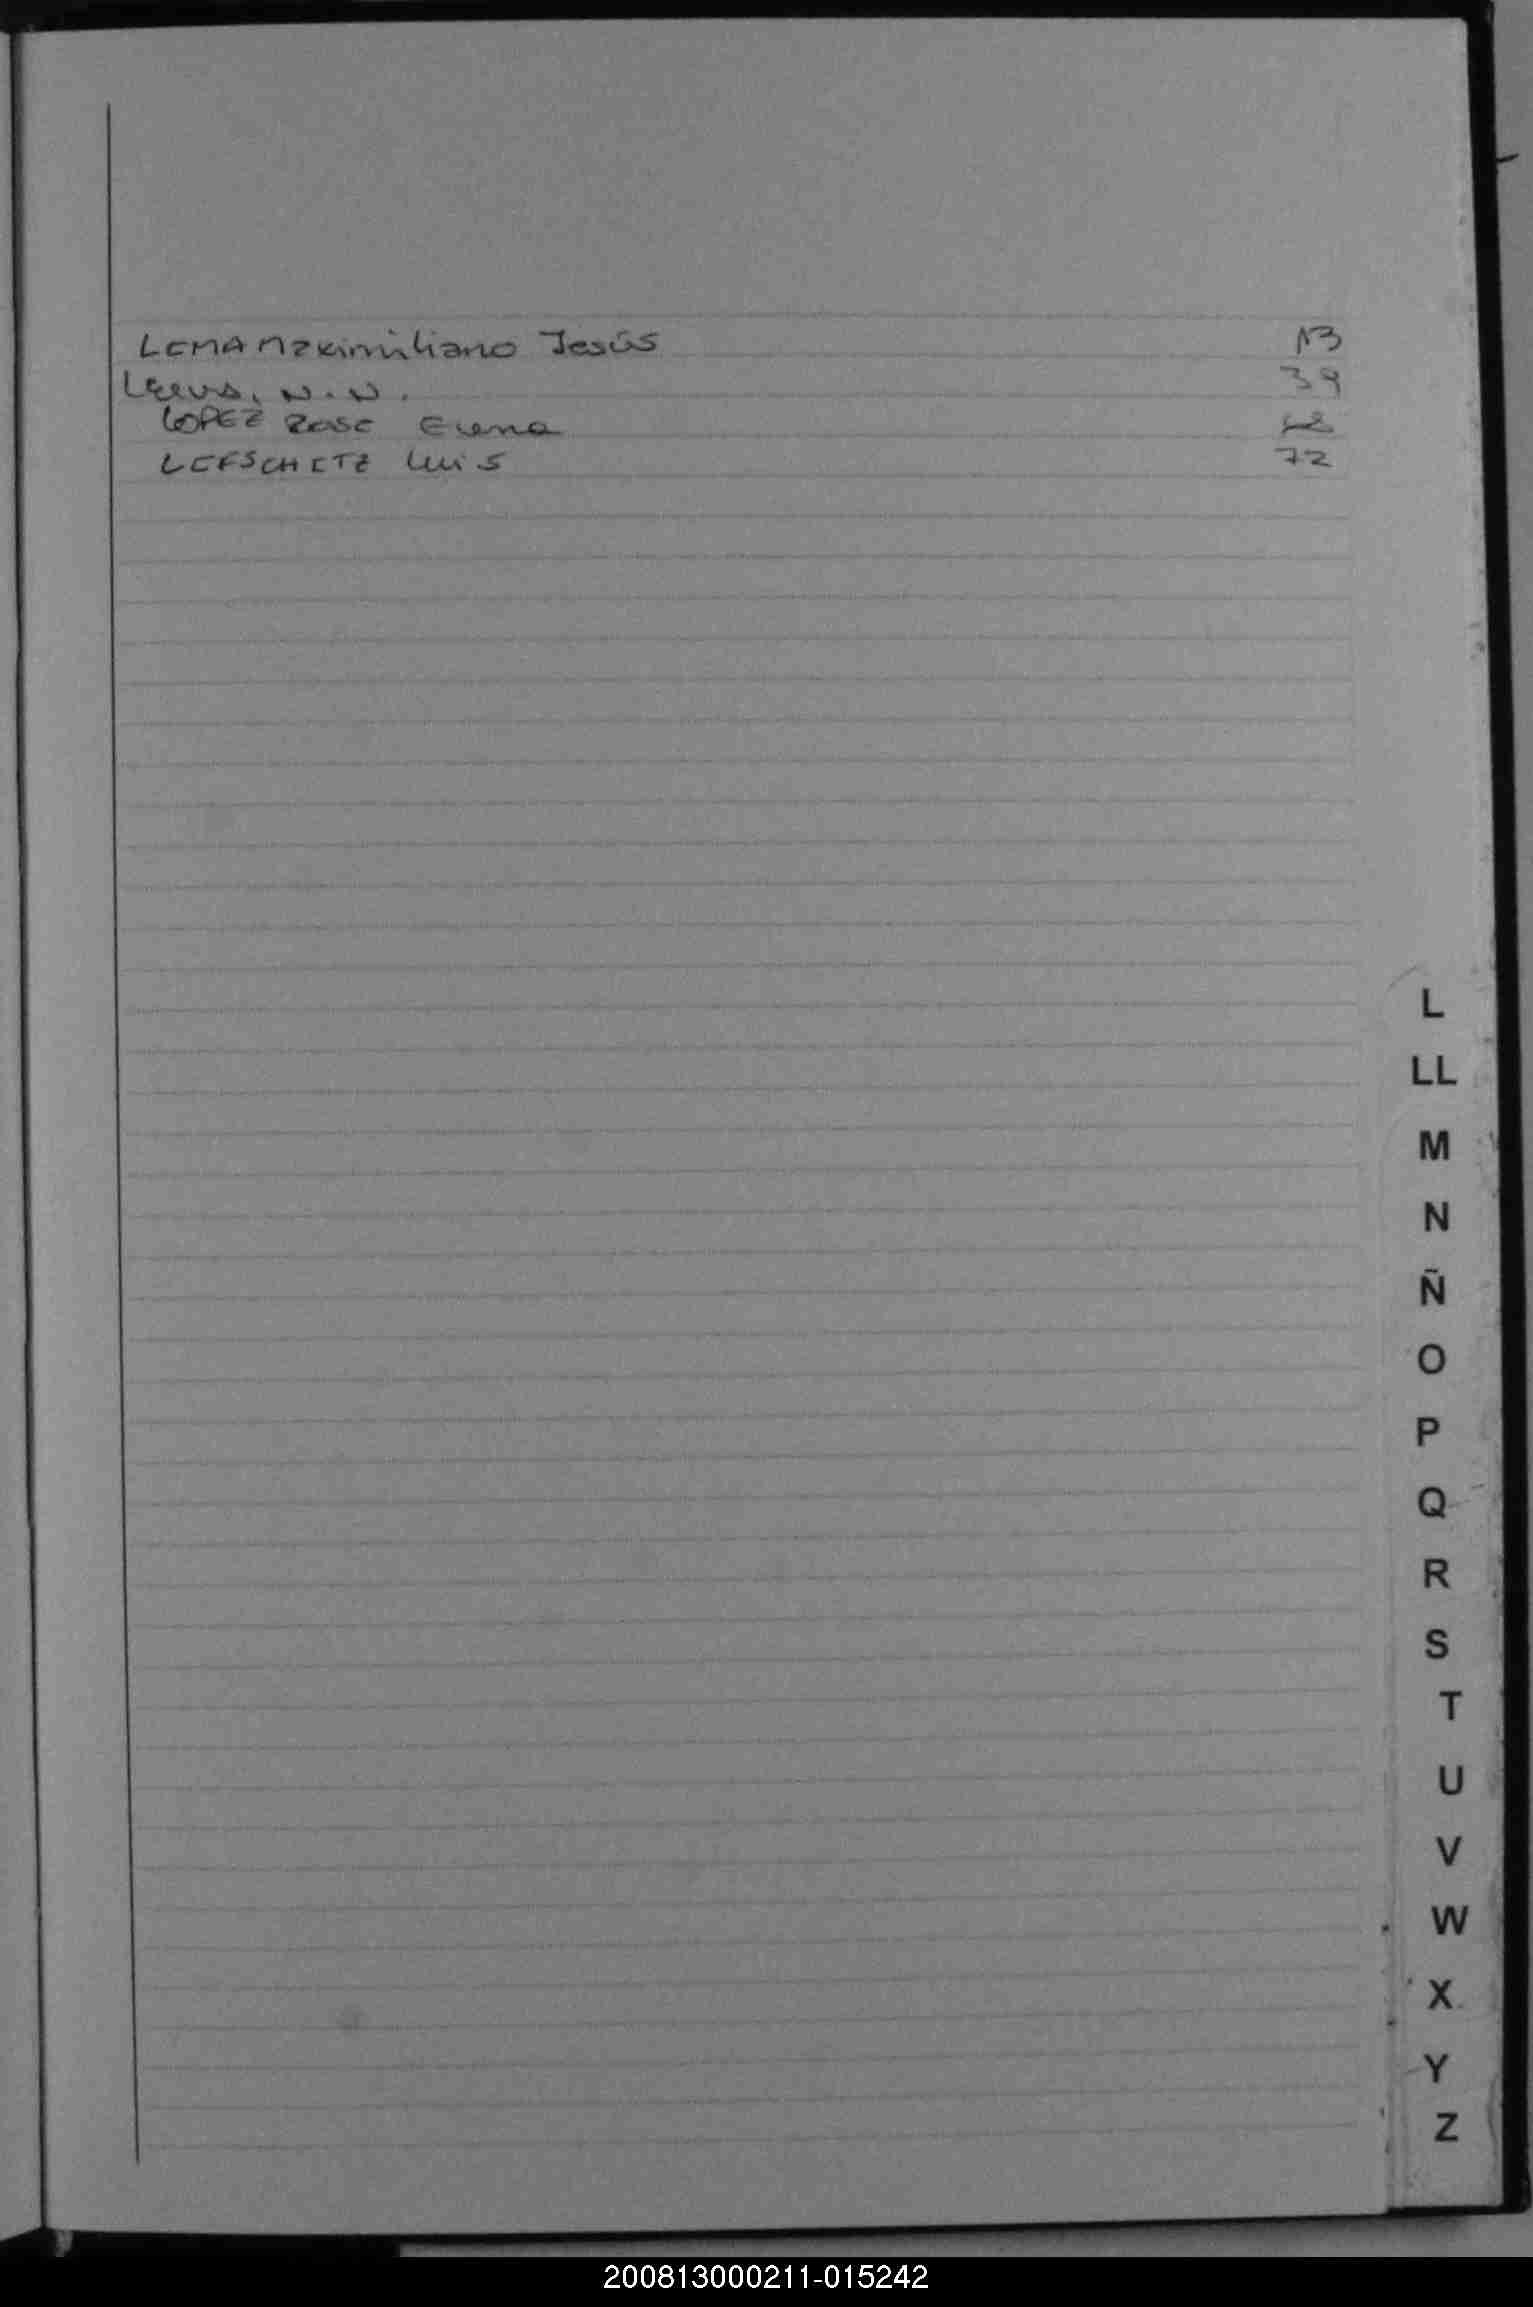 LEMA Maximiliano Jesús 13
N.N. 39
LOPEZ Rose Elena
LEFSCHETZ Luis 72
L
LL
M
N
Ñ
O
P
Q
R
S
T
U
V
W
X
Y
Z
200813000211-015242